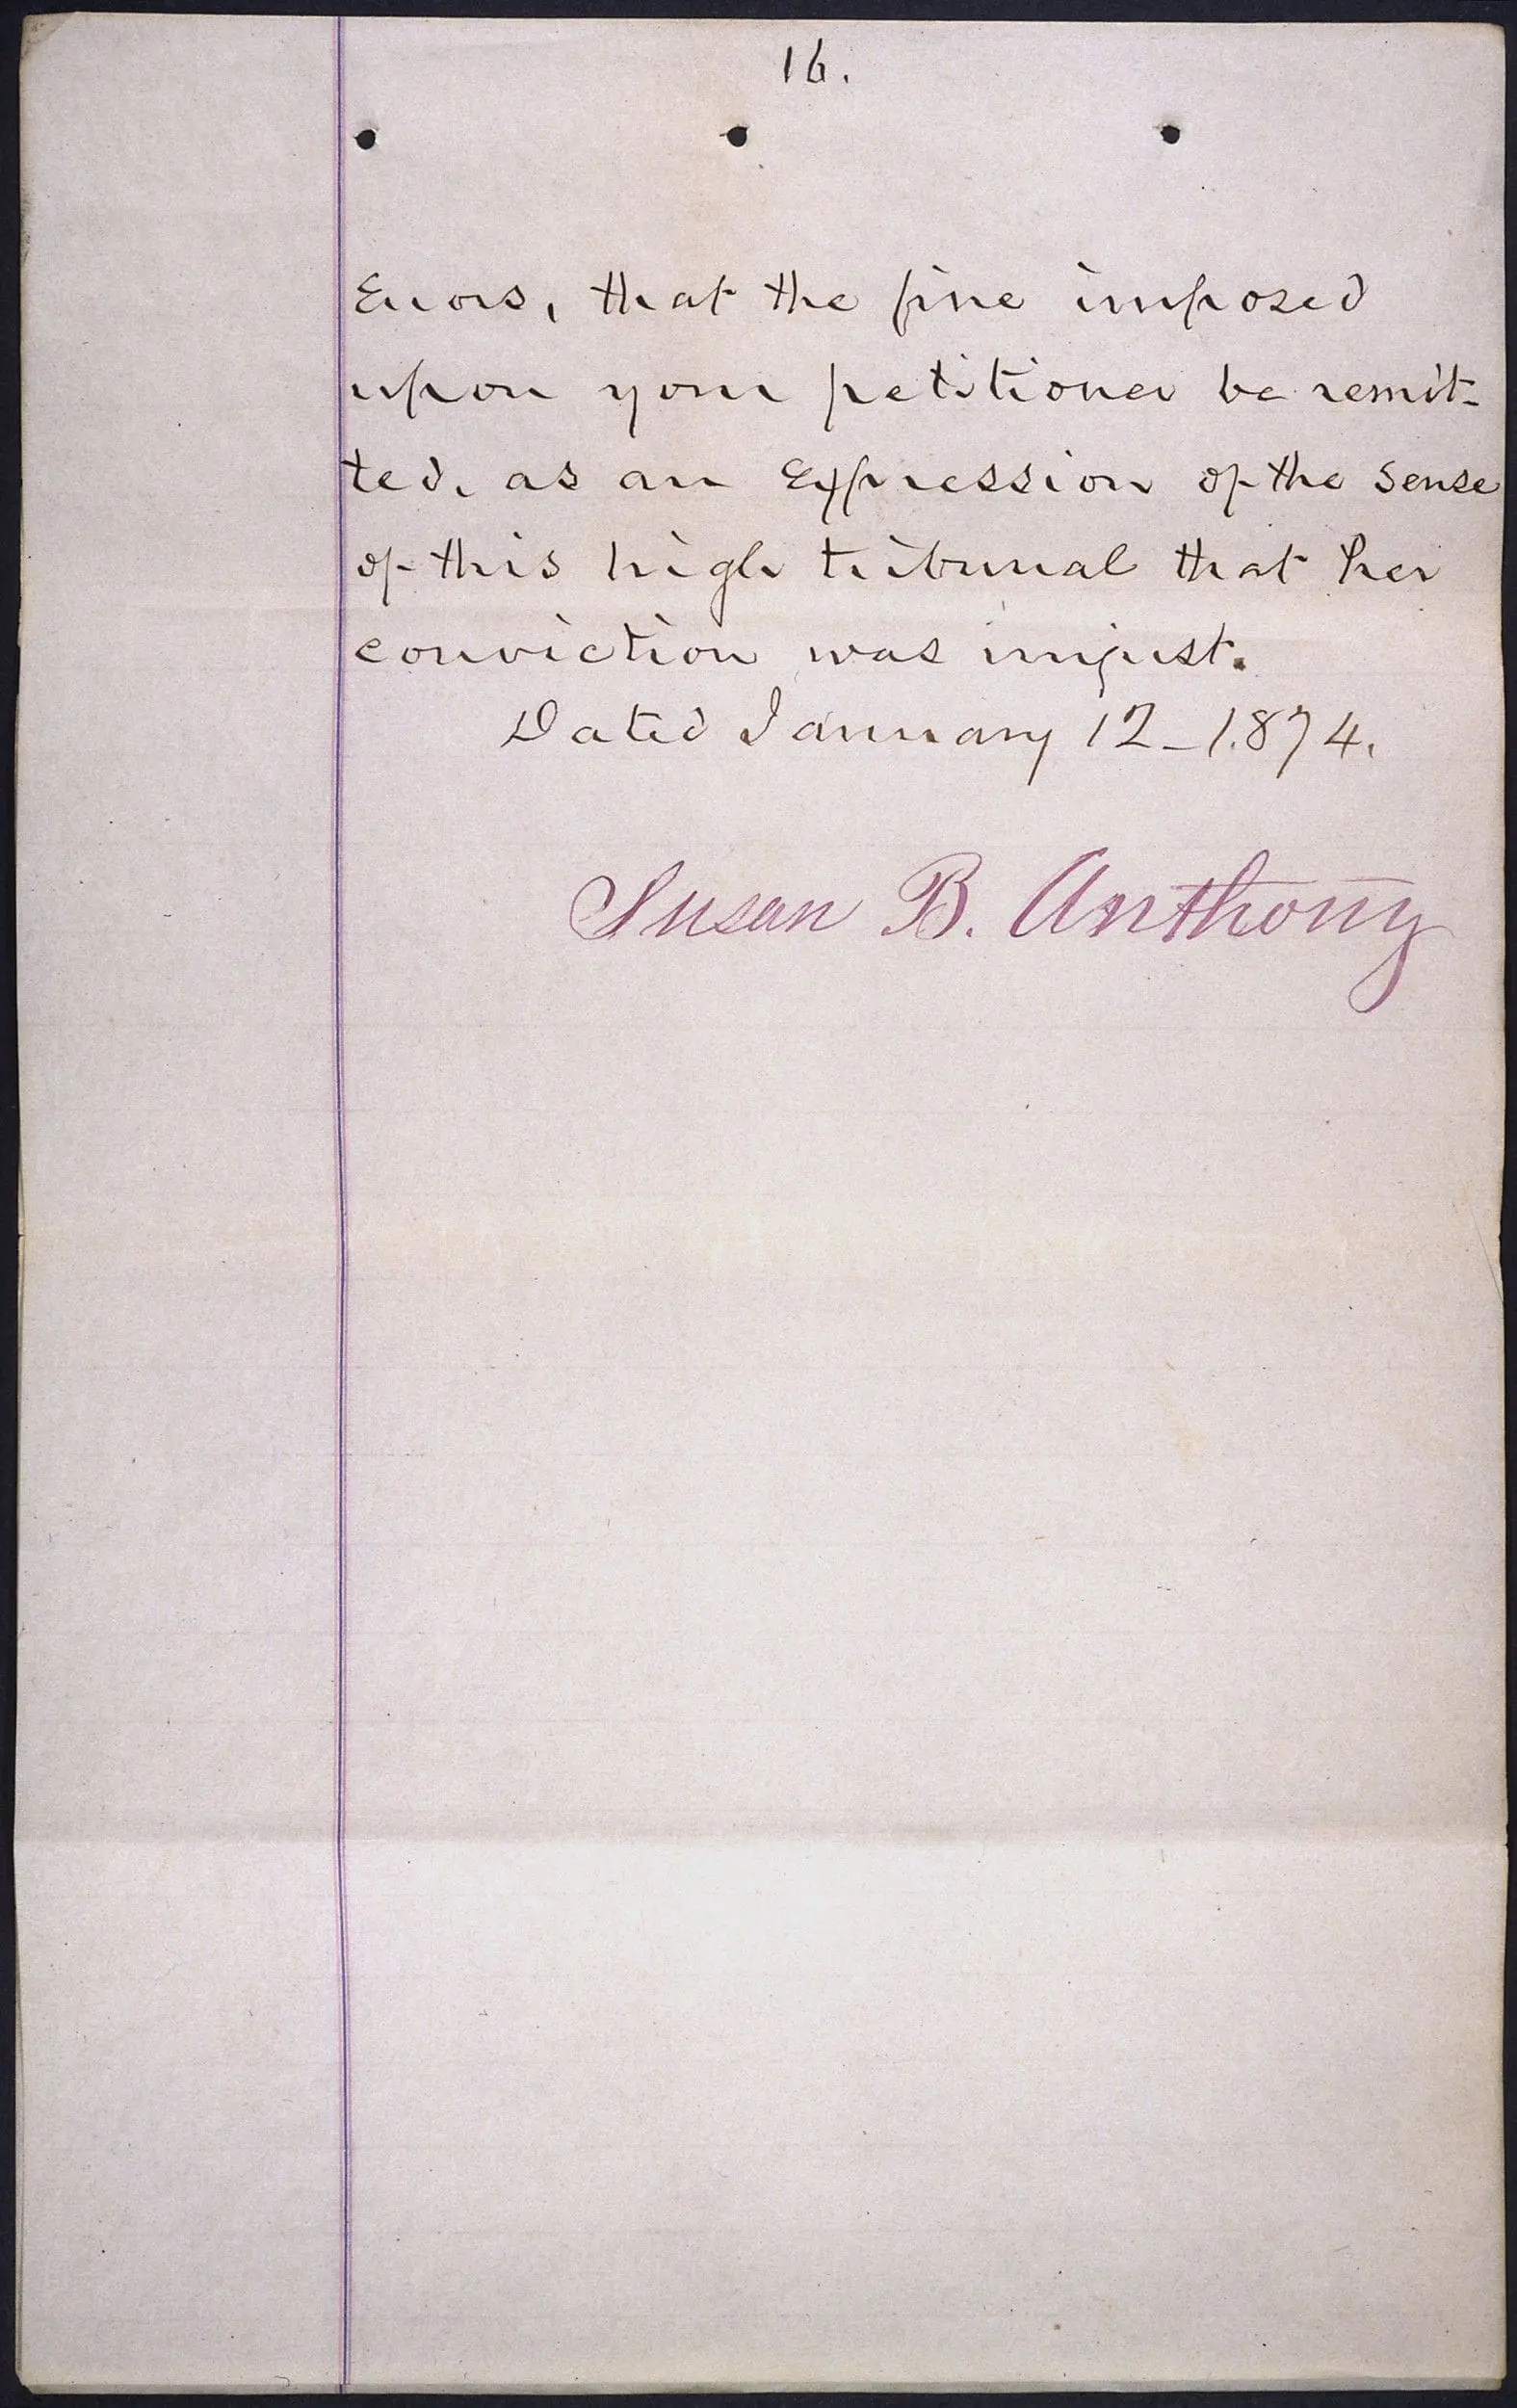 16.
Errors, that the fine imposed
upon your petitioner be remit-
ted, as an Expression of the sense
of this high tribunal that her
conviction was unjust.
Dated January 12-1.874.
Susan B. Anthony